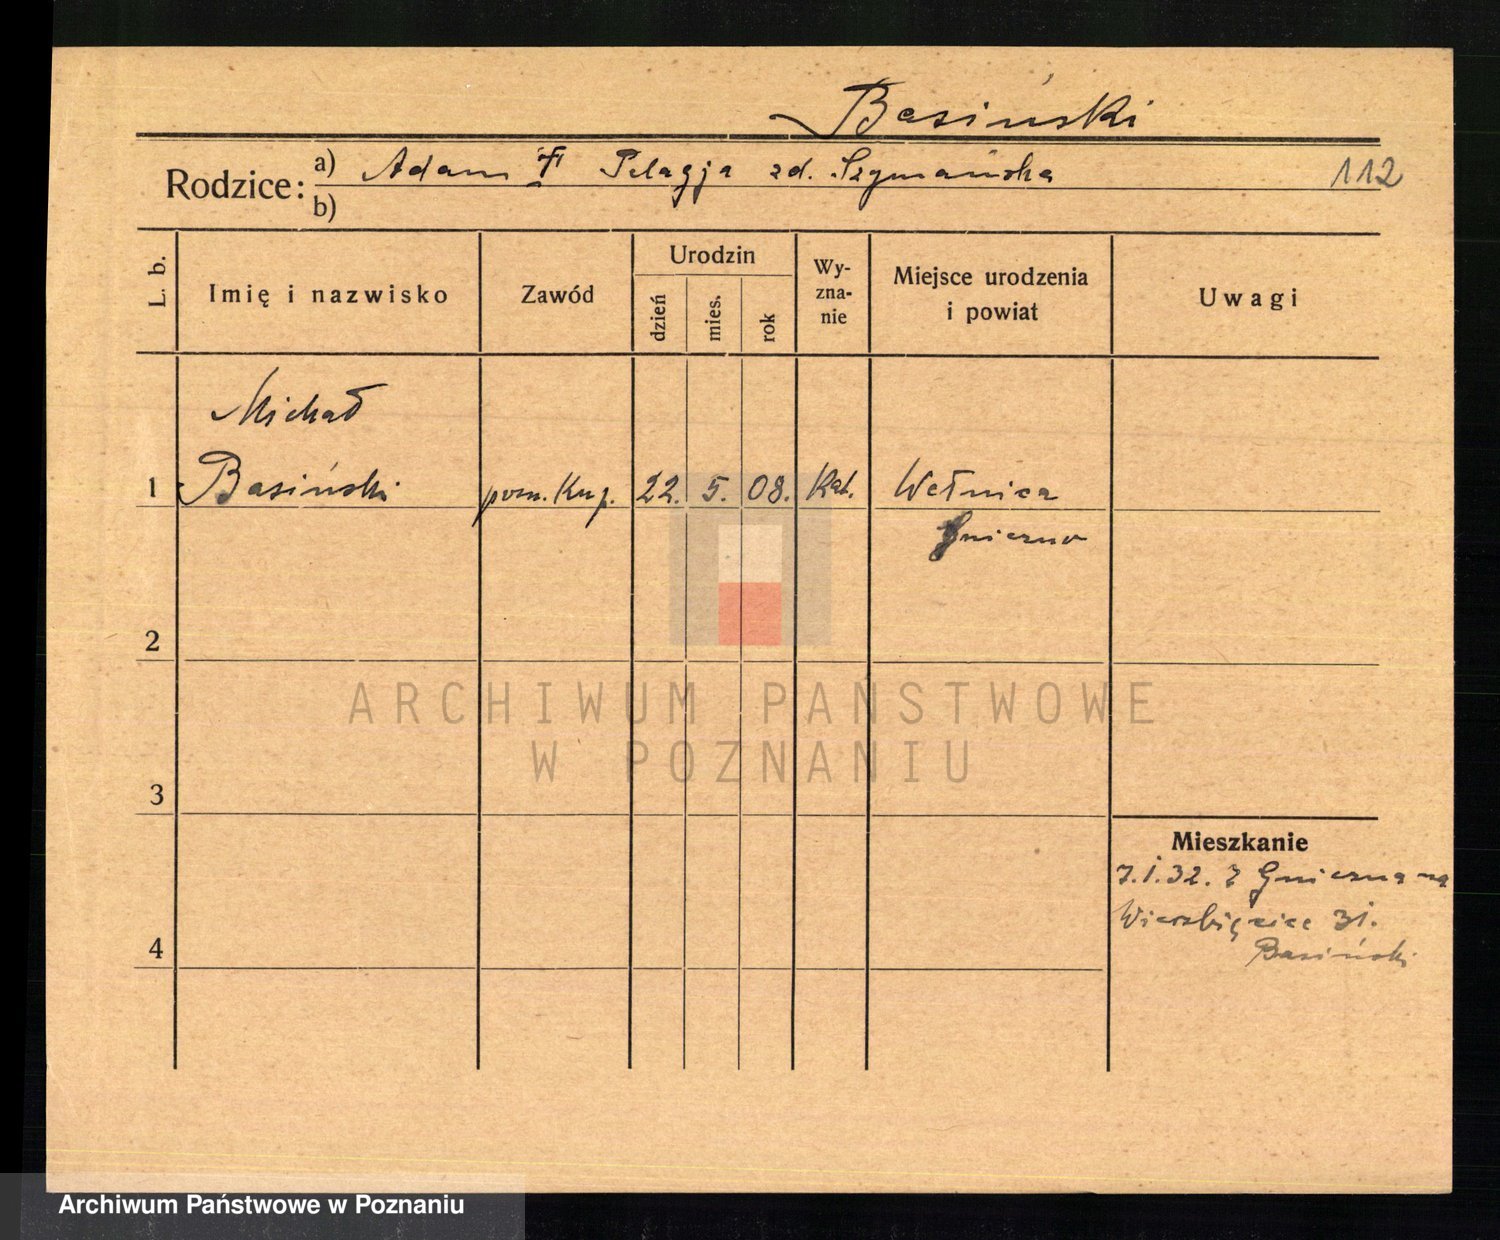 Basiński
Rodzice:
a) Adam Pelagja zd. Szymańska
112
b)
L. b.
Imię i nazwisko
Zawód
Urodzin
dzień
mies.
rok
Wy-
zna-
nie
Miejsce urodzenia
i powiat
Uwagi
Michał
1 Basiński pom. Kup. 22. 5. 08. Kat. Wełnica
Gniezno
2
3
4
Mieszkanie
7.1.32. z Gniezna na
Wierzbięcice 31.
Basiński
ARCHIWUM PAŃSTWOWE
W POZNANIU
Archiwum Państwowe w Poznaniu